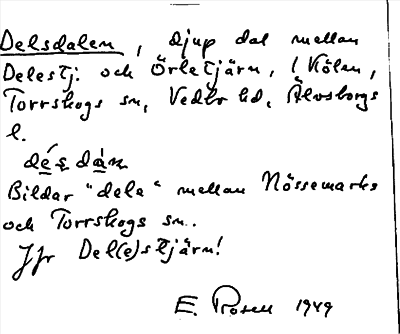 Delsdalen, djup dal mellan
Delestj. och Örletjärn, i Kölen,
Torrskogs sn, Vedbo hd, Älvsborgs
l.
Bildar "dela" mellan Nössemarks
och Torrskogs sn..
Jfr Del(e)stjärn!
E. Rosell 1949